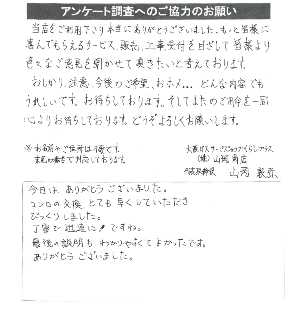 アンケート調査へのご協力のお願い
当店をご利用下さり本当にありがとうございました。もっと皆様に
喜んでもらえるサービス、販売、工事受付を目ざして皆様より
色々なご意見を聞かせて頂きたいと考えております。
おしかり、注意、今後のご希望、 どんな内容でも
うれしいです。お待ちしております。そしてまたのご用命を一同
心よりお待ちしております。どうぞよろしくお願いします。
※お名前やご住所は不要です。
(株)山河商店
今日は、ありがとうございました。
コンロの交換、とても早くしていただき
びっくりしました。
丁寧で迅速に!ですね。
最後の説明も、わかりやすくてよかったです。
ありがとうございました。